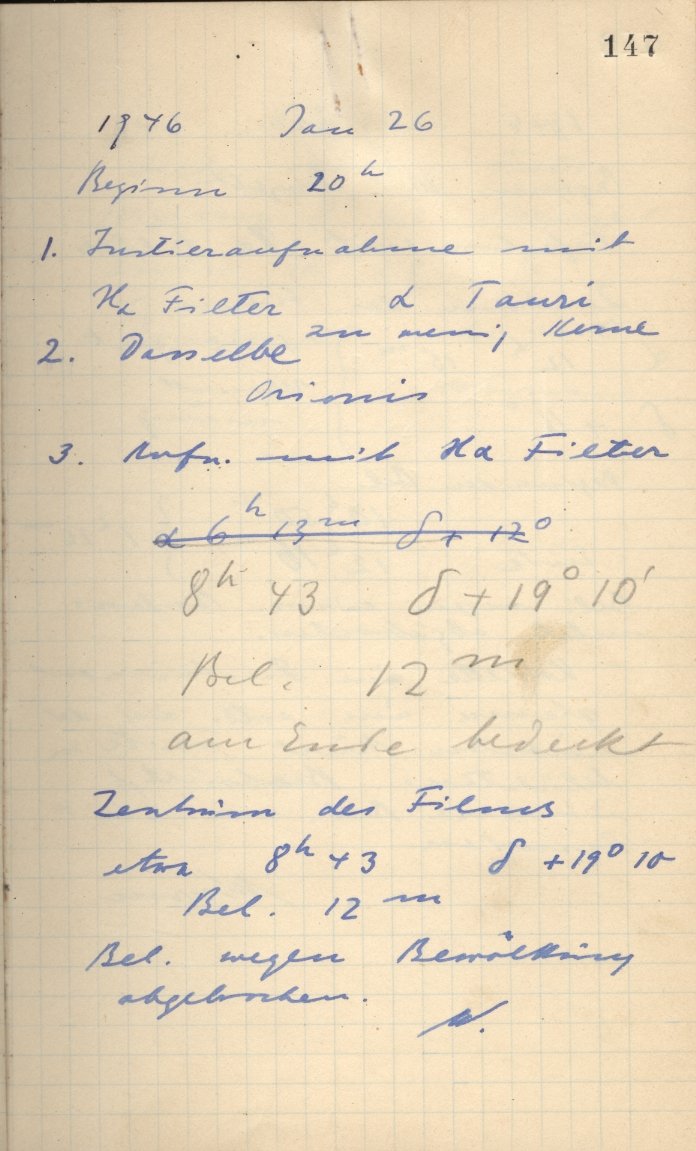 147
1946 Jan 26
Beginn 20h
1. Justieraufnahme mit
Hα Filter α Tauri
2. Dasselbe zu wenig Kerne
Orionis
3. Aufn. mit Hα Filter
α 6h 13m δ + 12°
8h 43 δ + 19° 10'
Bel. 12m
am Ende bedeckt
Zentrum des Filmes
etwa 8h 43 δ +19° 10
Bel. 12m
Bel. wegen Bewölkung
abgebrochen.
W.